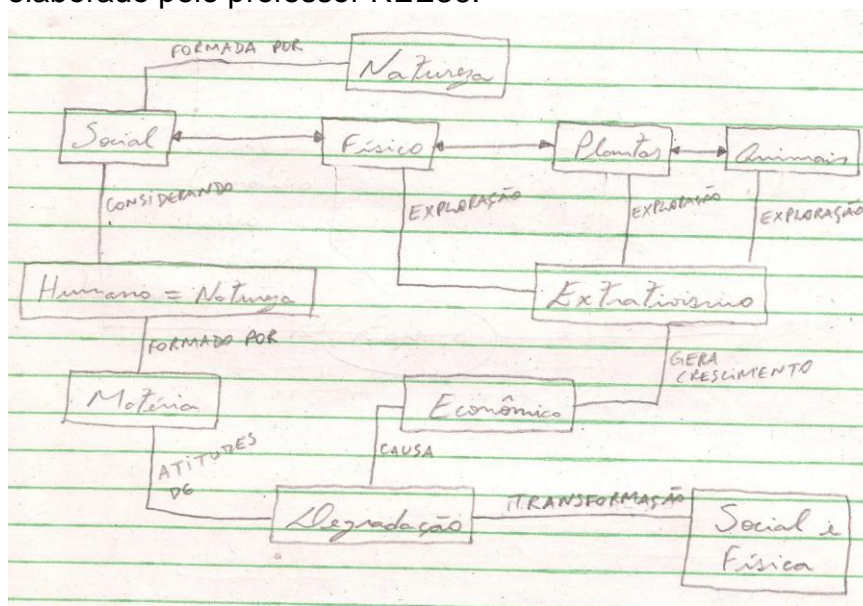 FORMADA POR
Natureza
Social
Físico
Plantas
Animais
CONSIDERANDO
EXPLORAÇÃO
EXPLORAÇÃO
EXPLORAÇÃO
Humano = Natureza
Extrativismo
FORMADO POR
GERA
CRESCIMENTO
Matéria
Econômico
ATITUDES
DE
CAUSA
Degradação
TRANSFORMAÇÃO
Social e
Física